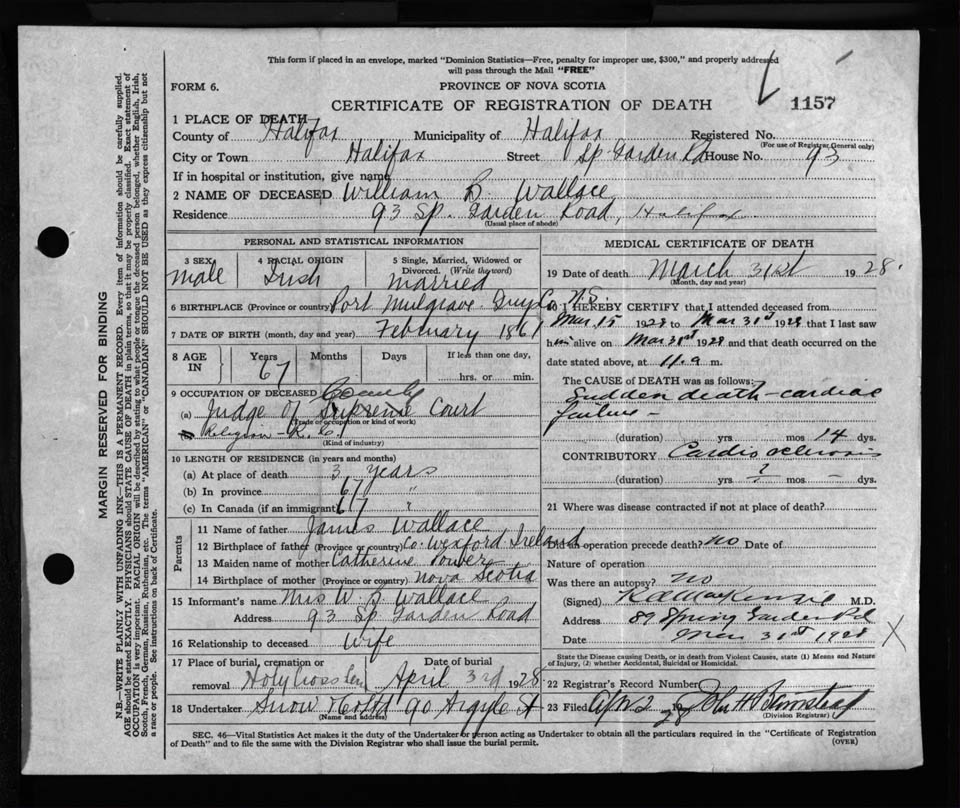 This form if placed in an envelope, marked "Dominion Statistics—Free, penalty for improper use, $300," and properly addressed
will pass through the Mail "FREE"
FORM 6.
PROVINCE OF NOVA SCOTIA
CERTIFICATE OF REGISTRATION OF DEATH
1157
1 PLACE OF DEATH
County of Halifax Municipality of Halifax Registered No.
(For use of Registrar General only)
City or Town Halifax Street Sp. Garden Rd House No. 93
If in hospital or institution, give name
2 NAME OF DECEASED William B. Wallace
Residence 93 Sp. Garden Road, Halifax
(Usual place of abode)
PERSONAL AND STATISTICAL INFORMATION
3 SEX 4 RACIAL ORIGIN 5 Single, Married, Widowed or
Divorced. (Write the word)
male Irish married
6 BIRTHPLACE (Province or country) Port Mulgrave Guys Co. N.S.
7 DATE OF BIRTH (month, day and year) February 1861
8 AGE IN Years Months Days If less than one day,
67 hrs. or min.
9 OCCUPATION OF DECEASED County
(a) Judge of Supreme Court
(Trade or occupation or kind of work)
Religion - R.C.
(Kind of industry)
10 LENGTH OF RESIDENCE (in years and months)
(a) At place of death 3 years
(b) In province 67 "
(c) In Canada (if an immigrant) 67 "
Parents
11 Name of father James Wallace
12 Birthplace of father (Province or country) Co. Wexford, Ireland
13 Maiden name of mother Catherine Power
14 Birthplace of mother (Province or country) Nova Scotia
15 Informant's name Mrs W. B. Wallace
Address 93 Sp. Garden Road
16 Relationship to deceased Wife
17 Place of burial, cremation or Date of burial
removal Holy Cross Cem April 3rd 1928
18 Undertaker Snow & Co Ltd 90 Argyle St
(Name and address)
MEDICAL CERTIFICATE OF DEATH
19 Date of death March 31st 1928.
(Month, day and year)
I HEREBY CERTIFY that I attended deceased from
Mar 15 1928 to Mar 31st 1928 that I last saw
him alive on Mar 31st 1928 and that death occurred on the
date stated above, at 11. a m.
The CAUSE OF DEATH was as follows:
Sudden death - cardiac
failure -
(duration) yrs mos 14 dys.
CONTRIBUTORY Cardio sclerosis
(duration) yrs ? mos — dys.
21 Where was disease contracted if not at place of death?
Did an operation precede death? no Date of
Nature of operation
Was there an autopsy? no
(Signed) K A MacKenzie M.D.
Address 89 Spring Garden Rd
Date Mar 31st 1928 X
State the Disease causing Death, or in death from Violent Causes, state (1) Means and Nature
of Injury, (2) whether Accidental, Suicidal or Homicidal.
22 Registrar's Record Number
23 Filed Apr 2 1928 John H
(Division Registrar)
SEC. 46—Vital Statistics Act makes it the duty of the Undertaker or person acting as Undertaker to obtain all the particulars required in the "Certificate of Registration
of Death" and to file the same with the Division Registrar who shall issue the burial permit.
(OVER)
MARGIN RESERVED FOR BINDING
N.B.—WRITE PLAINLY WITH UNFADING INK—THIS IS A PERMANENT RECORD. Every item of information should be carefully supplied.
AGE should be stated EXACTLY. PHYSICIANS should STATE CAUSE OF DEATH in plain terms, so that it may be properly classified. Exact statement of
OCCUPATION is very important. RACIAL ORIGIN will be described by stating to what people or tongue the deceased person belonged, whether English, Irish,
Scotch, French, German, Russian, Ruthenian, etc. The terms "AMERICAN" or "CANADIAN" SHOULD NOT BE USED as they express citizenship but not
a race or people. See instructions on back of Certificate.